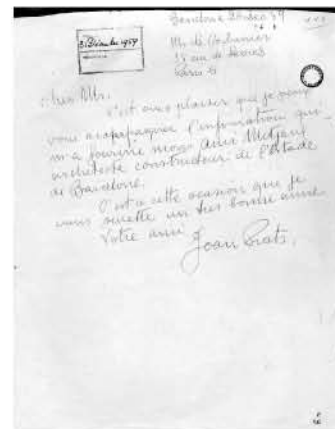 Barcelona 26 Dec 59
Mr. Le Corbusier
35 rue de Sèvres
Paris 6
Cher Mr.
C'est avec plaisir que je vous
vous accompagner l'information qui
m'a fourni mon ami Mitjans
architecte constructeur de l'Estade
de Barcelone.
C'est a cette ocasion que je
vous souette un tres bonne anne
Votre ami
Joan Prats.